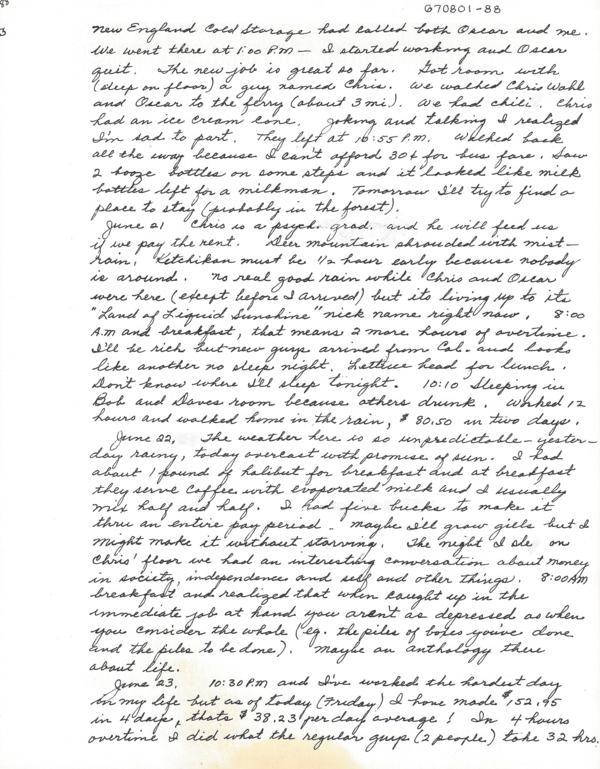 670801-88
3
New England Cold Storage had called both Oscar and me.
We went there at 1:00 P.M — I started working and Oscar
quit. The new job is great so far. Got room with
(sleep on floor) a guy named Chris. We walked Chris Wahl
and Oscar to the ferry (about 3 mi.). We had chili. Chris
had an ice cream cone. Joking and talking I realized
I'm sad to part. They left at 10:55 P.M. Walked back
all the way because I can't afford 30¢ for bus fare. Saw
2 booze bottles on some steps and it looked like milk
bottles left for a milkman. Tomorrow I'll try to find a
place to stay (probably in the forest).
June 21 Chris is a psych. grad. and he will feed us
if we pay the rent. Deer mountain shrouded with mist –
rain. Ketchikan must be ½ hour early because nobody
is around. No real good rain while Chris and Oscar
were here (except before I arrived) but its living up to its
"Land of Liquid Sunshine" nick name right now. 8:00
A.M and breakfast, that means 2 more hours of overtime.
I'll be rich but new guys arrived from Cal. and looks
like another no sleep night. Lettuce head for lunch.
Don't know where I'll sleep tonight. 10:10 Sleeping in
Bob and Daves room because others drunk. Worked 12
hours and walked home in the rain, $80.50 in two days.
June 22. The weather here is so unpredictable – yester-
day rainy, today overcast with promise of sun. I had
about 1 pound of halibut for breakfast and at breakfast
they serve coffee with evaporated milk and I usually
mix half and half. I had five bucks to make it
thru an entire pay period. Maybe I'll grow gills but I
might make it without starving. The night I sle on
Chris' floor we had an interesting conversation about money
in society, independence and self and other things. 8:00 AM
breakfast and realized that when caught up in the
immediate job at hand you aren't as depressed as when
you consider the whole (eg. the piles of boxes youve done
and the piles to be done). Maybe an anthology there
about life.
June 23. 10:30 P.M and I've worked the hardest day
in my life but as of today (Friday) I have made $152.95
in 4 days, thats $38.23 per day average! In 4 hours
overtime I did what the regular guys (2 people) take 32 hrs.